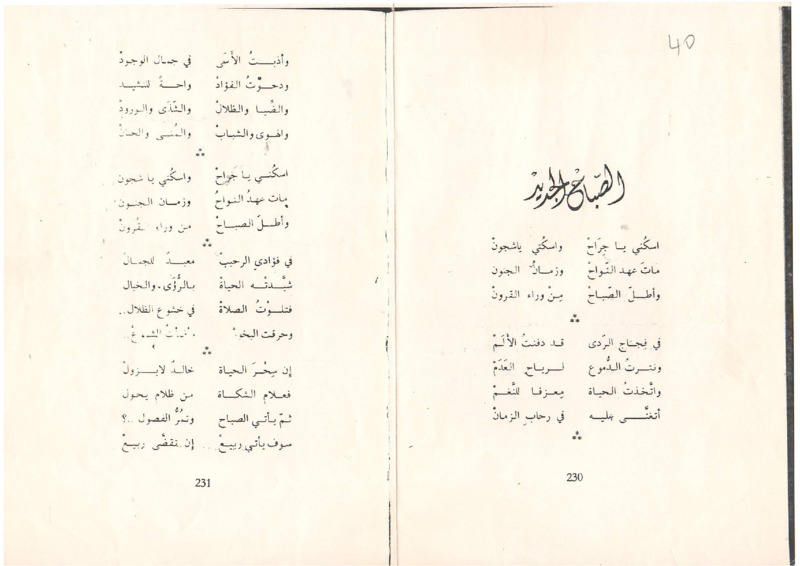 40
الصّباح الجديد
اسكُني يا جِرَاحْ واسكتي ياشجونْ
ماتَ عهد النّواحْ وزمانُ الجنونْ
وأطلّ الصّباحْ مِنْ وراء القرونْ
في فِجاجِ الرّدى قد دفنتُ الألَمْ
ونثرتُ الدُّموع لرياحِ العَدَمْ
واتّخذتُ الحياة مِعزفا للنَّغمْ
أتغنَّى عليه في رحابِ الزمانْ
230
وأذبتُ الأسَى في جمال الوجودْ
ودحوْتُ الفؤادْ واحةً للنشيد
والضّيا والظلالْ والشّذَى والورودْ
والهوى والشبابْ والمُنَى والحنانْ
اسكُني يا جَراحْ واسكُتي يا شجون
مات عهدُ النواحُ وزمان الجنون
وأطلّ الصباحْ من وراء القُرونْ
في فؤادي الرحيبْ معبدٌ للجمال
شيَّدتْه الحياة بالرُّؤَى، والخيال
فتلوتُ الصلاة في خشوع الظلال..
وحرقت البخور
إن سِحْرَ الحياة خالدٌ لايزولْ
فعلام الشكاة من ظلامٍ يحول
ثمّ يأتي الصباح وتمُرُّ الفصول ..؟
سوف يأتي ربيعْ.. إن تقضَّى ربيعْ
231